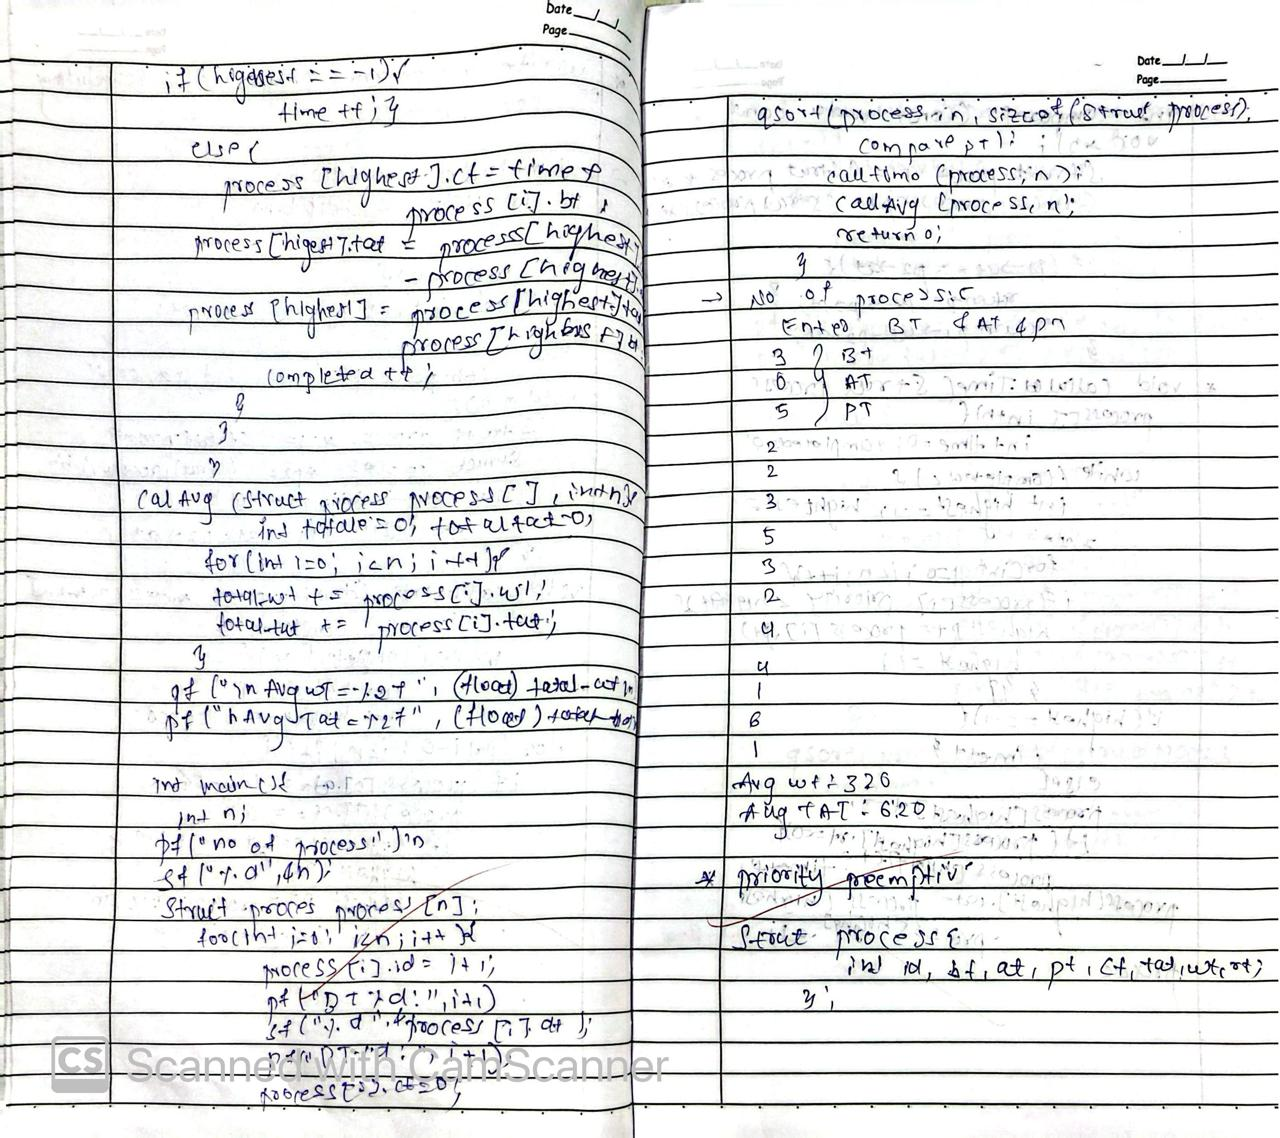 Date
Page
if (highest == -1){
time ++; }
else {
process [highest].ct = time +
process [i]. bt ;
process [higest].tat = process [highest]
- process [highest].
process [highest] = process [highest].ta
process [highest]
completed ++ ;
}
}
}
Cal Avg (struct process process [ ], int n){
int total = 0; total tat = 0;
for (int i=0; i<n; i++){
total-wt += process [i]. wt;
total-tat += process [i]. tat;
}
pf ("\n Avg WT = %.2f", (float) total-wt
pf ("\n Avg Tat = %.2f", (float) total-
int main (){
int n;
pf ("no of process")
sf ("%d", &n);
Struct proces process [n];
for (int i=0; i<n; i++ ){
process [i].id = i+1;
pf ("BT %d:", i+1)
sf ("%d", & process [i].
i+1);
process [i]. ct=0;
CS Scanned with CamScanner
Date
Page
qsort (process, n, sizeof (struct process),
compare pt);
call time (process, n);
call Avg (process, n);
return 0;
}
→ No of process: 5
Enter BT & AT & pn
3 } Bt
0 } AT
5 ) PT
2
2
3
5
3
2
4
4
1
6
1
Avg wt : 3.20
Avg TAT : 6.20
* priority preemptive
Struct process {
int id, bt, at, pt, ct, tat, wt, rt;
};